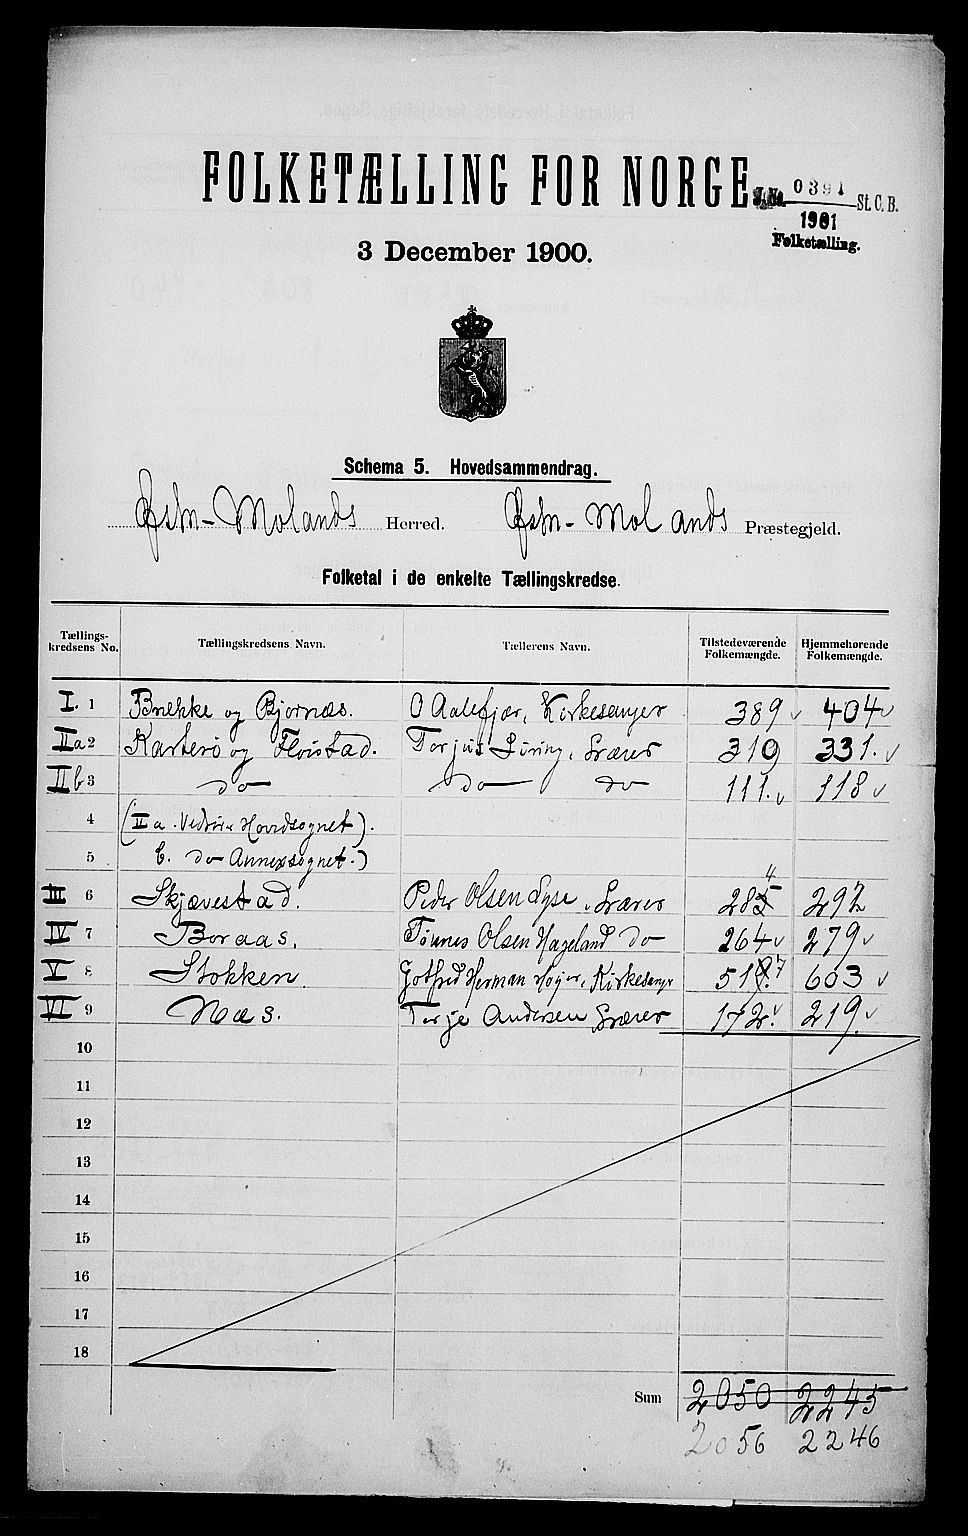 FOLKETÆLLING FOR NORGE
J. No. 0391 St. C. B.
1901
Folketælling.
3 December 1900.
Schema 5. Hovedsammendrag.
Østre-Molands Herred. Østre-Molands Præstegjeld.
Folketal i de enkelte Tællingskredse.
Tællings-kredsens No. Tællingskredsens Navn. Tællerens Navn. Tilstedeværende Folkemængde. Hjemmehørende Folkemængde.
I. 1 Brekke og Bjornæs. O Aalefjær, Kirkesanger 389 404
IIa 2 Kasterö og Flöistad. Torjus Lüring, Lærer 319 331.
IIb 3 do do do 111. 118
4 (IIa. Vedrörer Hovedsognet).
5 b. do Annexsognet.)
III 6 Skjævestad. Peder Olsen Lyse, Lærer 284 292
IV 7 Boraas. Tönnes Olsen Hageland do 264 279
V 8 Stokken. Gotfred Herman Höyer, Kirkesanger 517 603
VI 9 Næs. Terje Andersen Lærer 172. 219.
10
11
12
13
14
15
16
17
18
Sum 2050 2245
2056 2246